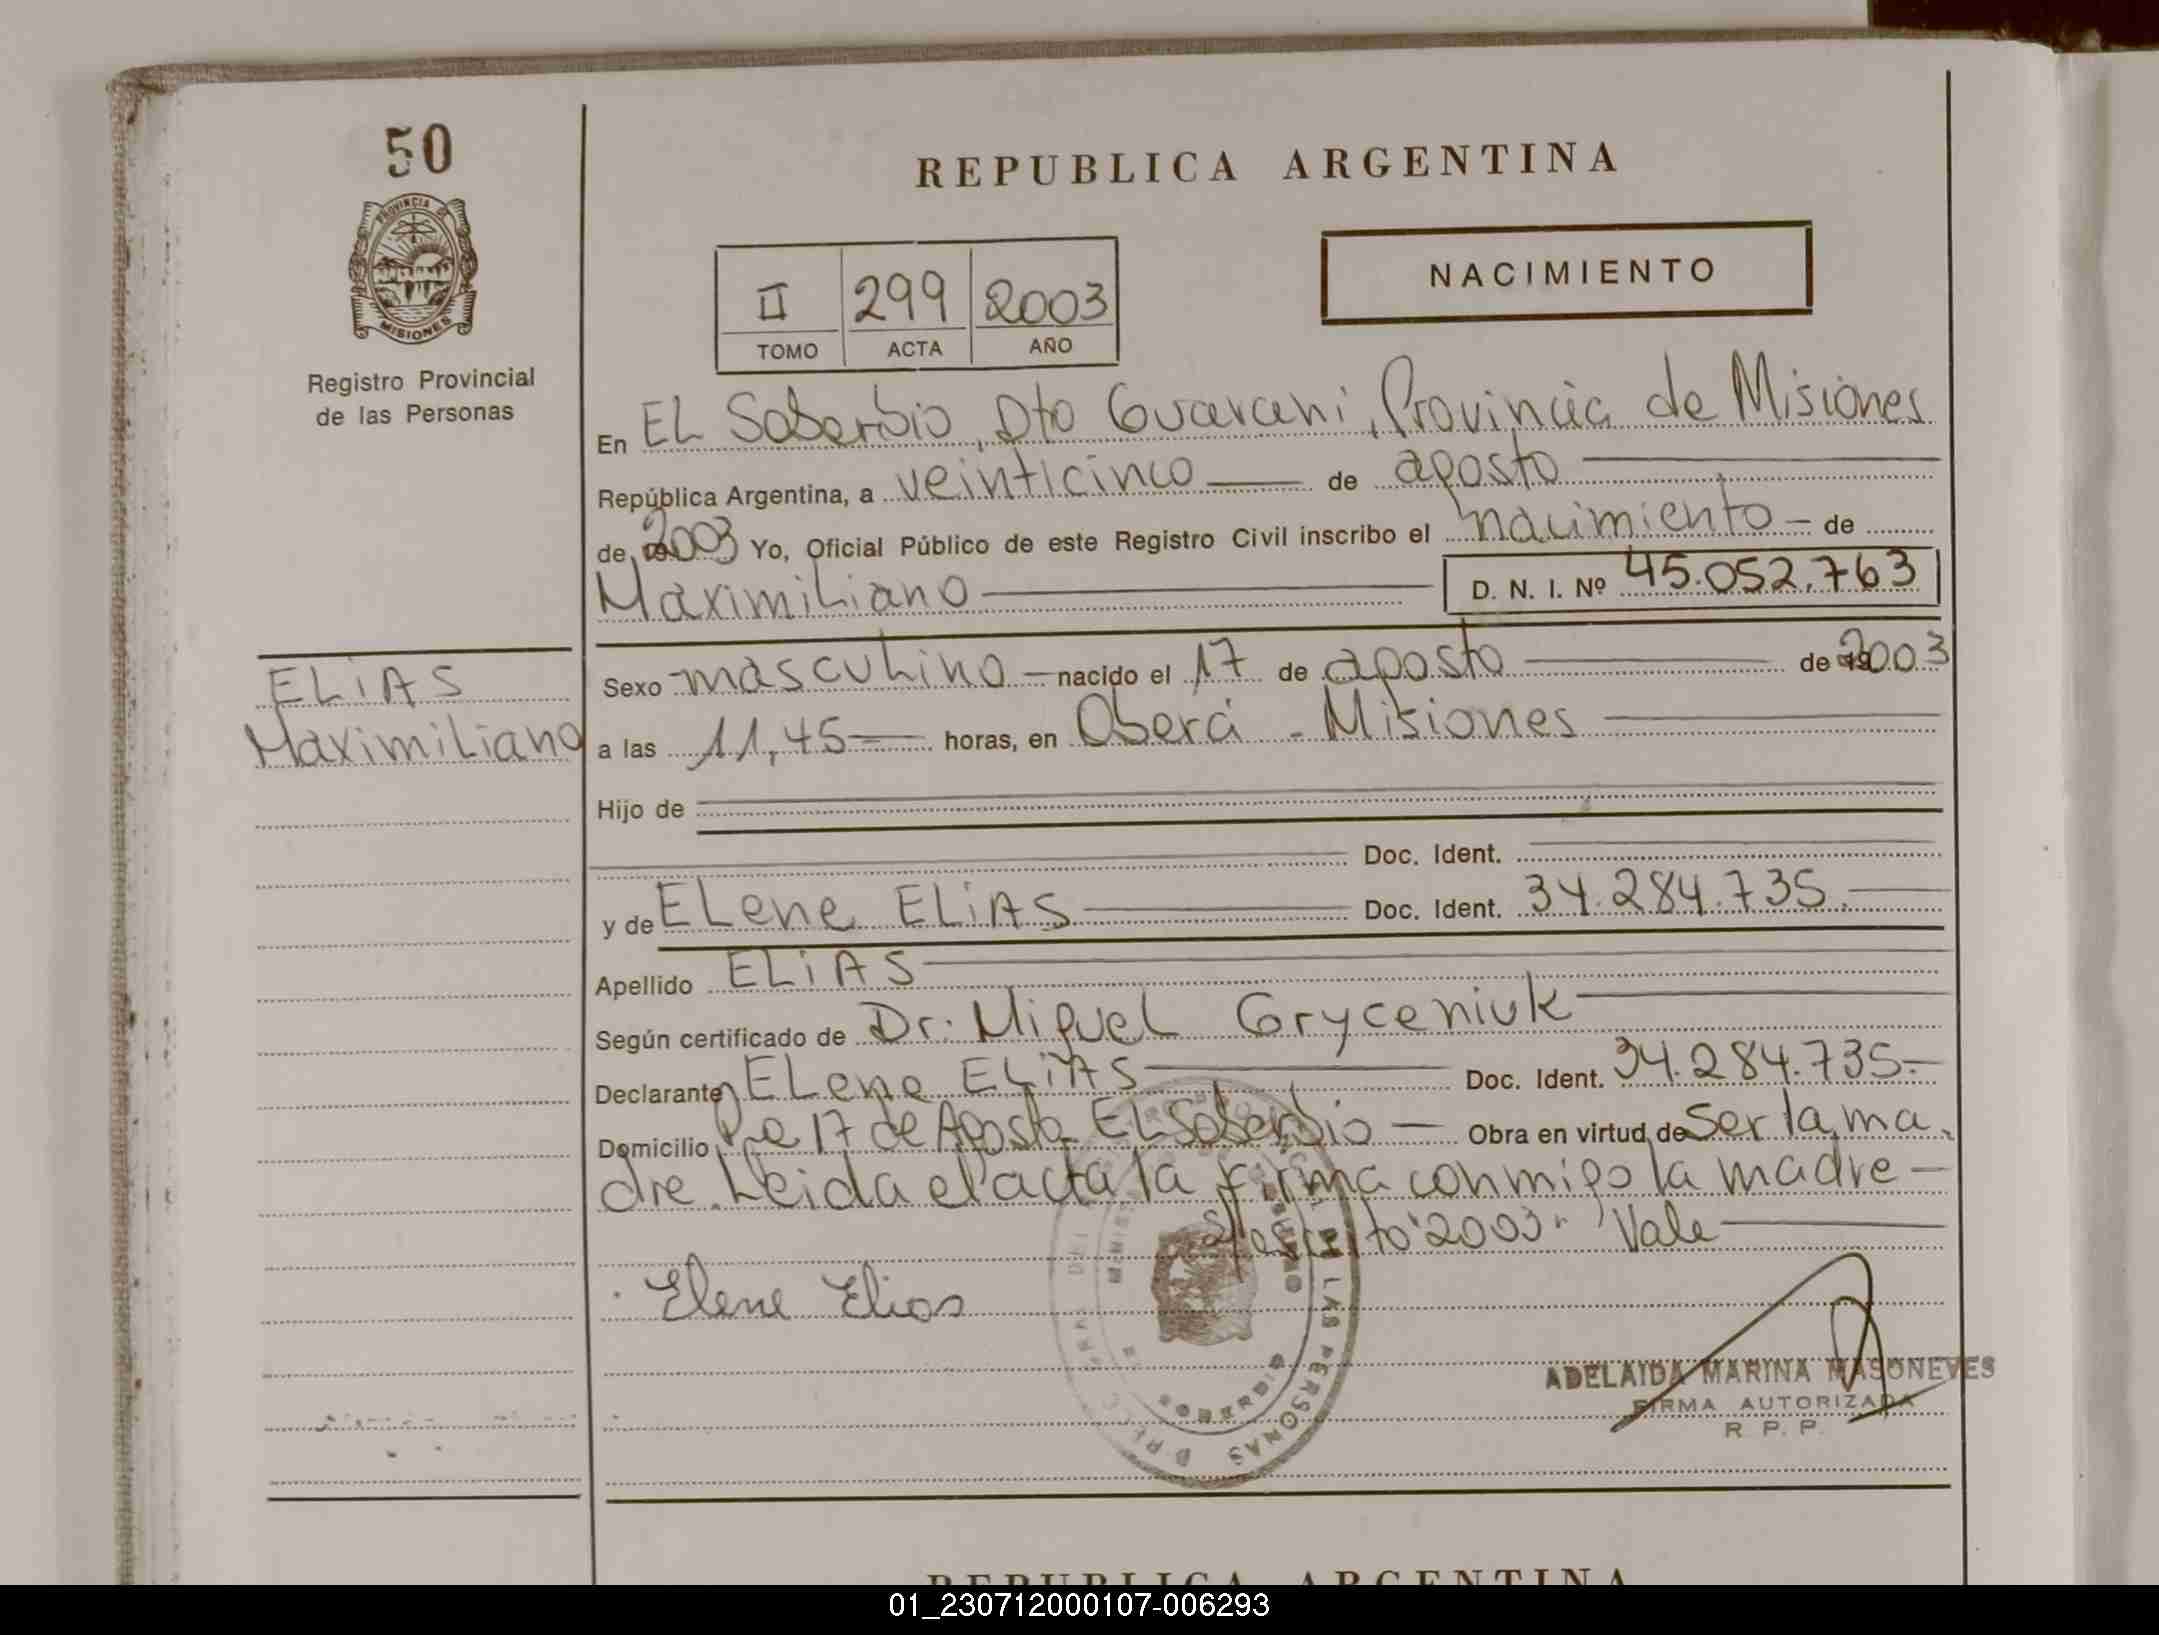 50
PROVINCIA DE
MISIONES
Registro Provincial
de las Personas
REPUBLICA ARGENTINA
II 299 2003
TOMO ACTA AÑO
NACIMIENTO
En EL Soberbio, Dto Guarani, Provincia de Misiones
República Argentina, a veinticinco de agosto
de 2003 Yo, Oficial Público de este Registro Civil inscribo el nacimiento de
Maximiliano D. N. I. Nº 45.052.763
ELIAS
Maximiliano
Sexo masculino nacido el 17 de agosto de 2003
a las 11,45 horas, en Oberá - Misiones
Hijo de
Doc. Ident.
y de ELene ELIAS Doc. Ident. 34.284.735.
Apellido ELIAS
Según certificado de Dr. Miguel Gryceniuk
Declarante ELene ELIAS Doc. Ident. 34.284.735.-
Domicilio 17 de Agosto EL Soberbio Obra en virtud de ser la ma
dre. Leida el acta la firma conmigo la madre
"2003" Vale
Elene Elias
LAS PERSONAS
ADELAIDA MARINA MASONEVES
FIRMA AUTORIZADA
R. P. P.
REPUBLICA ARGENTINA
01_230712000107-006293